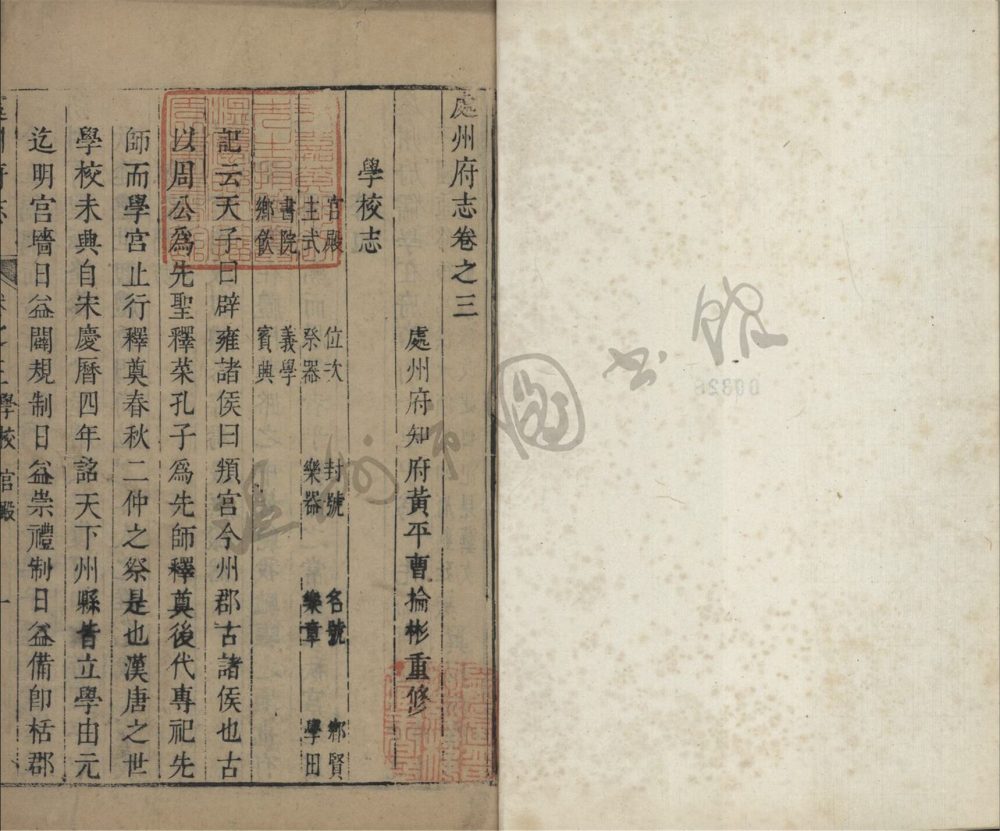 處州府志卷之三
處州府知府黃平曹掄彬重修
學校志
宮殿 位次 封號 名號 鄉賢
主式 祭器 樂器 樂章 學田
書院 義學
鄉飲 賓典
記云天子曰辟雍諸侯曰頖宮今州郡古諸侯也古
以周公爲先聖釋菜孔子爲先師釋奠後代專祀先
師而學宮止行釋奠春秋二仲之祭是也漢唐之世
學校未典自宋慶曆四年詔天下州縣皆立學由元
迄明宮墻日益闢規制日益崇禮制日益備卽栝郡
處州府志 卷之三 學校 宮殿 一
溫州市圖書館